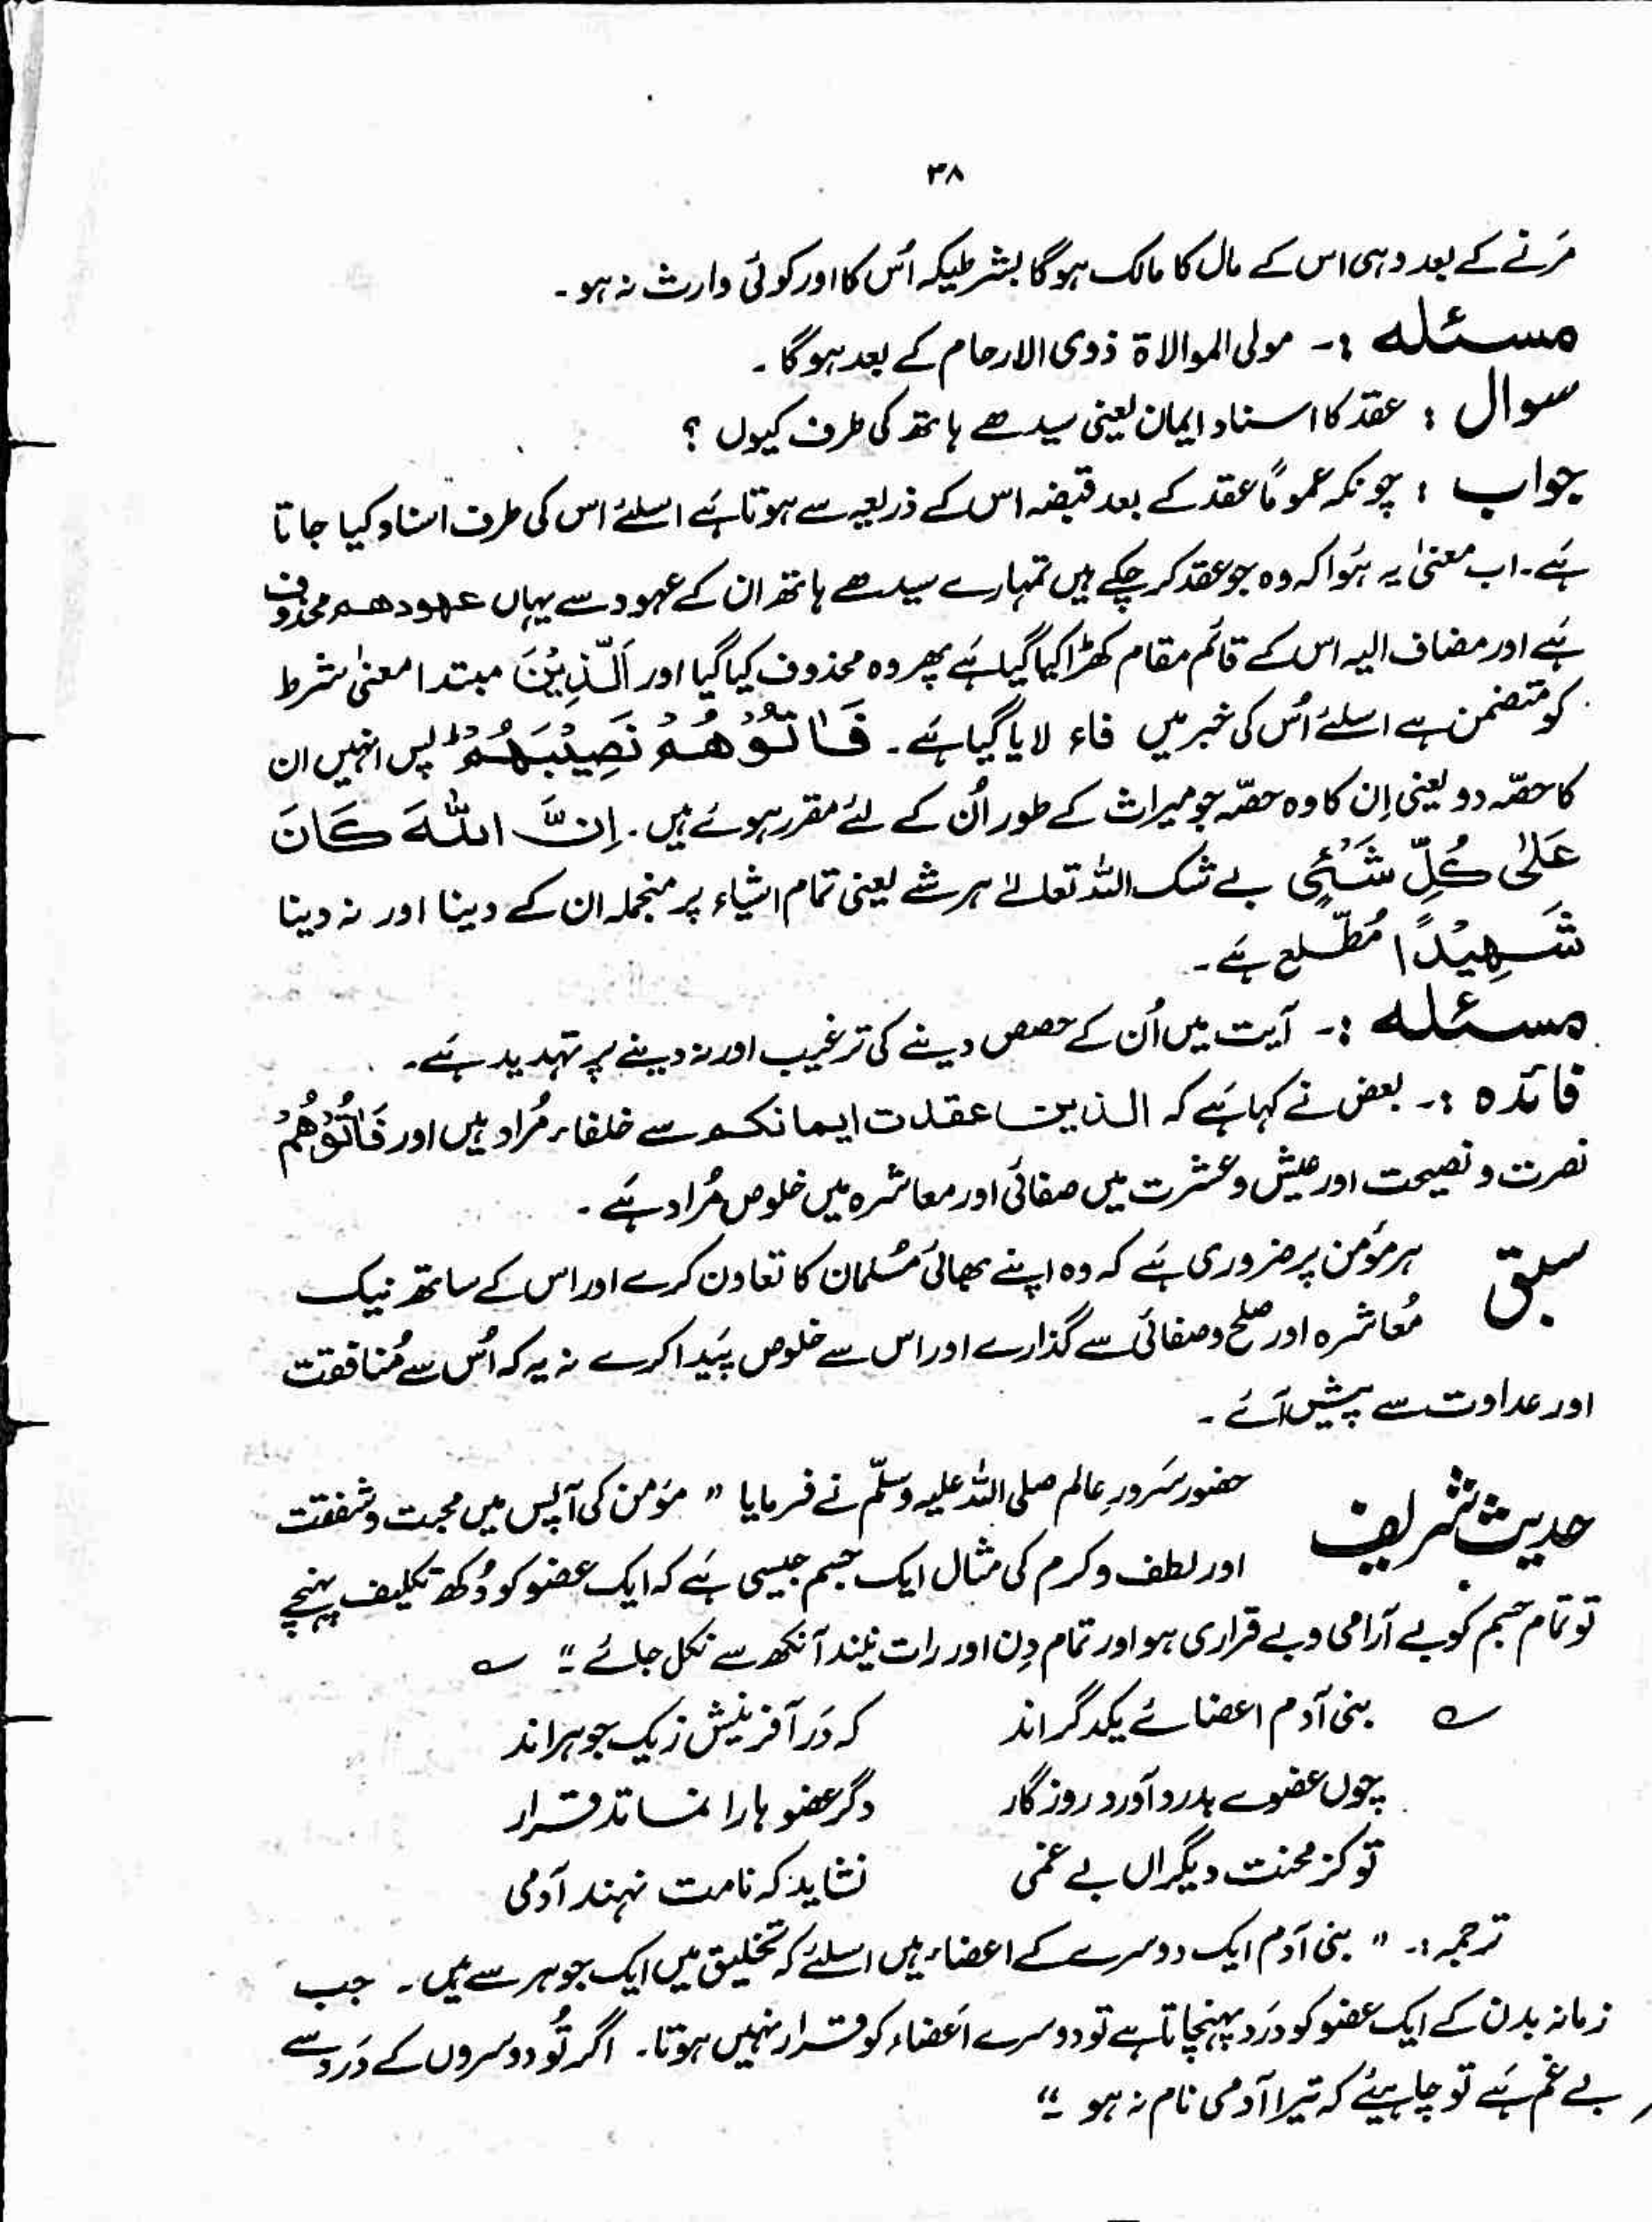 ۳۸
مَرنے کے بعد وہی اس کے مال کا مالک ہوگا بشرطیکہ اُس کا اور کوئی وارث نہ ہو۔
مسئلہ :۔ مولی الموالاۃ ذوی الارحام کے بعد ہوگا۔
سوال : عقد کا اسناد ایمان یعنی سیدھے ہاتھ کی طرف کیوں ؟
جواب : چونکہ عموماً عقد کے بعد قبضہ اس کے ذریعہ سے ہوتا ہَے اسلئے اس کی طرف اسناد کیا جاتا
ہَے۔ اب معنیٰ یہ ہُوا کہ وہ جو عقد کر چکے ہیں تمہارے سیدھے ہاتھ ان کے عہود سے یہاں عھودھم محذوف
ہَے اور مضاف الیہ اس کے قائم مقام کھڑا کیا گیا ہَے پھر وہ محذوف کیا گیا اور اَلَّذِیْنَ مبتدا معنیٰ شرط
کو متضمن ہے اسلئے اُس کی خبر میں فاء لایا گیا ہَے۔ فَاٰتُوْهُمْ نَصِیْبَهُمْ ط پس انہیں ان
کا حصّہ دو یعنی اِن کا وہ حصّہ جو میراث کے طور اُن کے لئے مقرر ہوئے ہیں۔ اِنَّ اللّٰهَ كَانَ
عَلٰى كُلِّ شَیْئٍ بے شک اللہ تعالےٰ ہر شے یعنی تمام اشیاء پر منجملہ ان کے دینا اور نہ دینا
شَهِیْدًا مُطّلع ہَے۔
مسئلہ :۔ آیت میں اُن کے حصص دینے کی ترغیب اور نہ دینے پر تہدید ہَے۔
فائدہ :۔ بعض نے کہا ہَے کہ الذین عقدت ایمانکم سے خلفاء مُراد ہیں اور فَاٰتُوْهُمْ
نصرت و نصیحت اور عیش و عشرت میں صفائی اور معاشرہ میں خلوص مُراد ہَے۔
سبق ہر مؤمن پر ضروری ہَے کہ وہ اپنے بھائی مُسلمان کا تعاون کرے اور اس کے ساتھ نیک
مُعاشرہ اور صلح و صفائی سے گذارے اور اس سے خلوص پَیدا کرے نہ یہ کہ اُس سے مُنافقت
اور عداوت سے پیش آئے۔
حدیث شریف حضور سَرورِ عالم صلی اللہ علیہ وسلّم نے فرمایا " مؤمن کی آپس میں محبت و شفقت
اور لطف و کرم کی مثال ایک جسم جیسی ہَے کہ ایک عضو کو دُکھ تکلیف پہنچے
تو تمام جسم کو بے آرامی و بے قراری ہو اور تمام دِن اور رات نیند آنکھ سے نکل جائے " ؎
؎ بنی آدم اعضائے یکدگر اند کہ دَر آفرینش زیک جوہر اند
چوں عضوے بدرد آورد روزگار دگر عضوہا را نماند قرار
تو کز محنت دیگراں بے غمی نشاید کہ نامت نہند آدمی
ترجمہ :۔ " بنی آدم ایک دوسرے کے اعضاء ہیں اسلئے کہ تخلیق میں ایک جوہر سے ہیں۔ جب
زمانہ بدن کے ایک عضو کو دَرد پہنچاتا ہے تو دوسرے اَعضاء کو قرار نہیں ہوتا۔ اگر تُو دوسروں کے دَرد سے
بے غم ہَے تو چاہیئے کہ تیرا آدمی نام نہ ہو ۔"